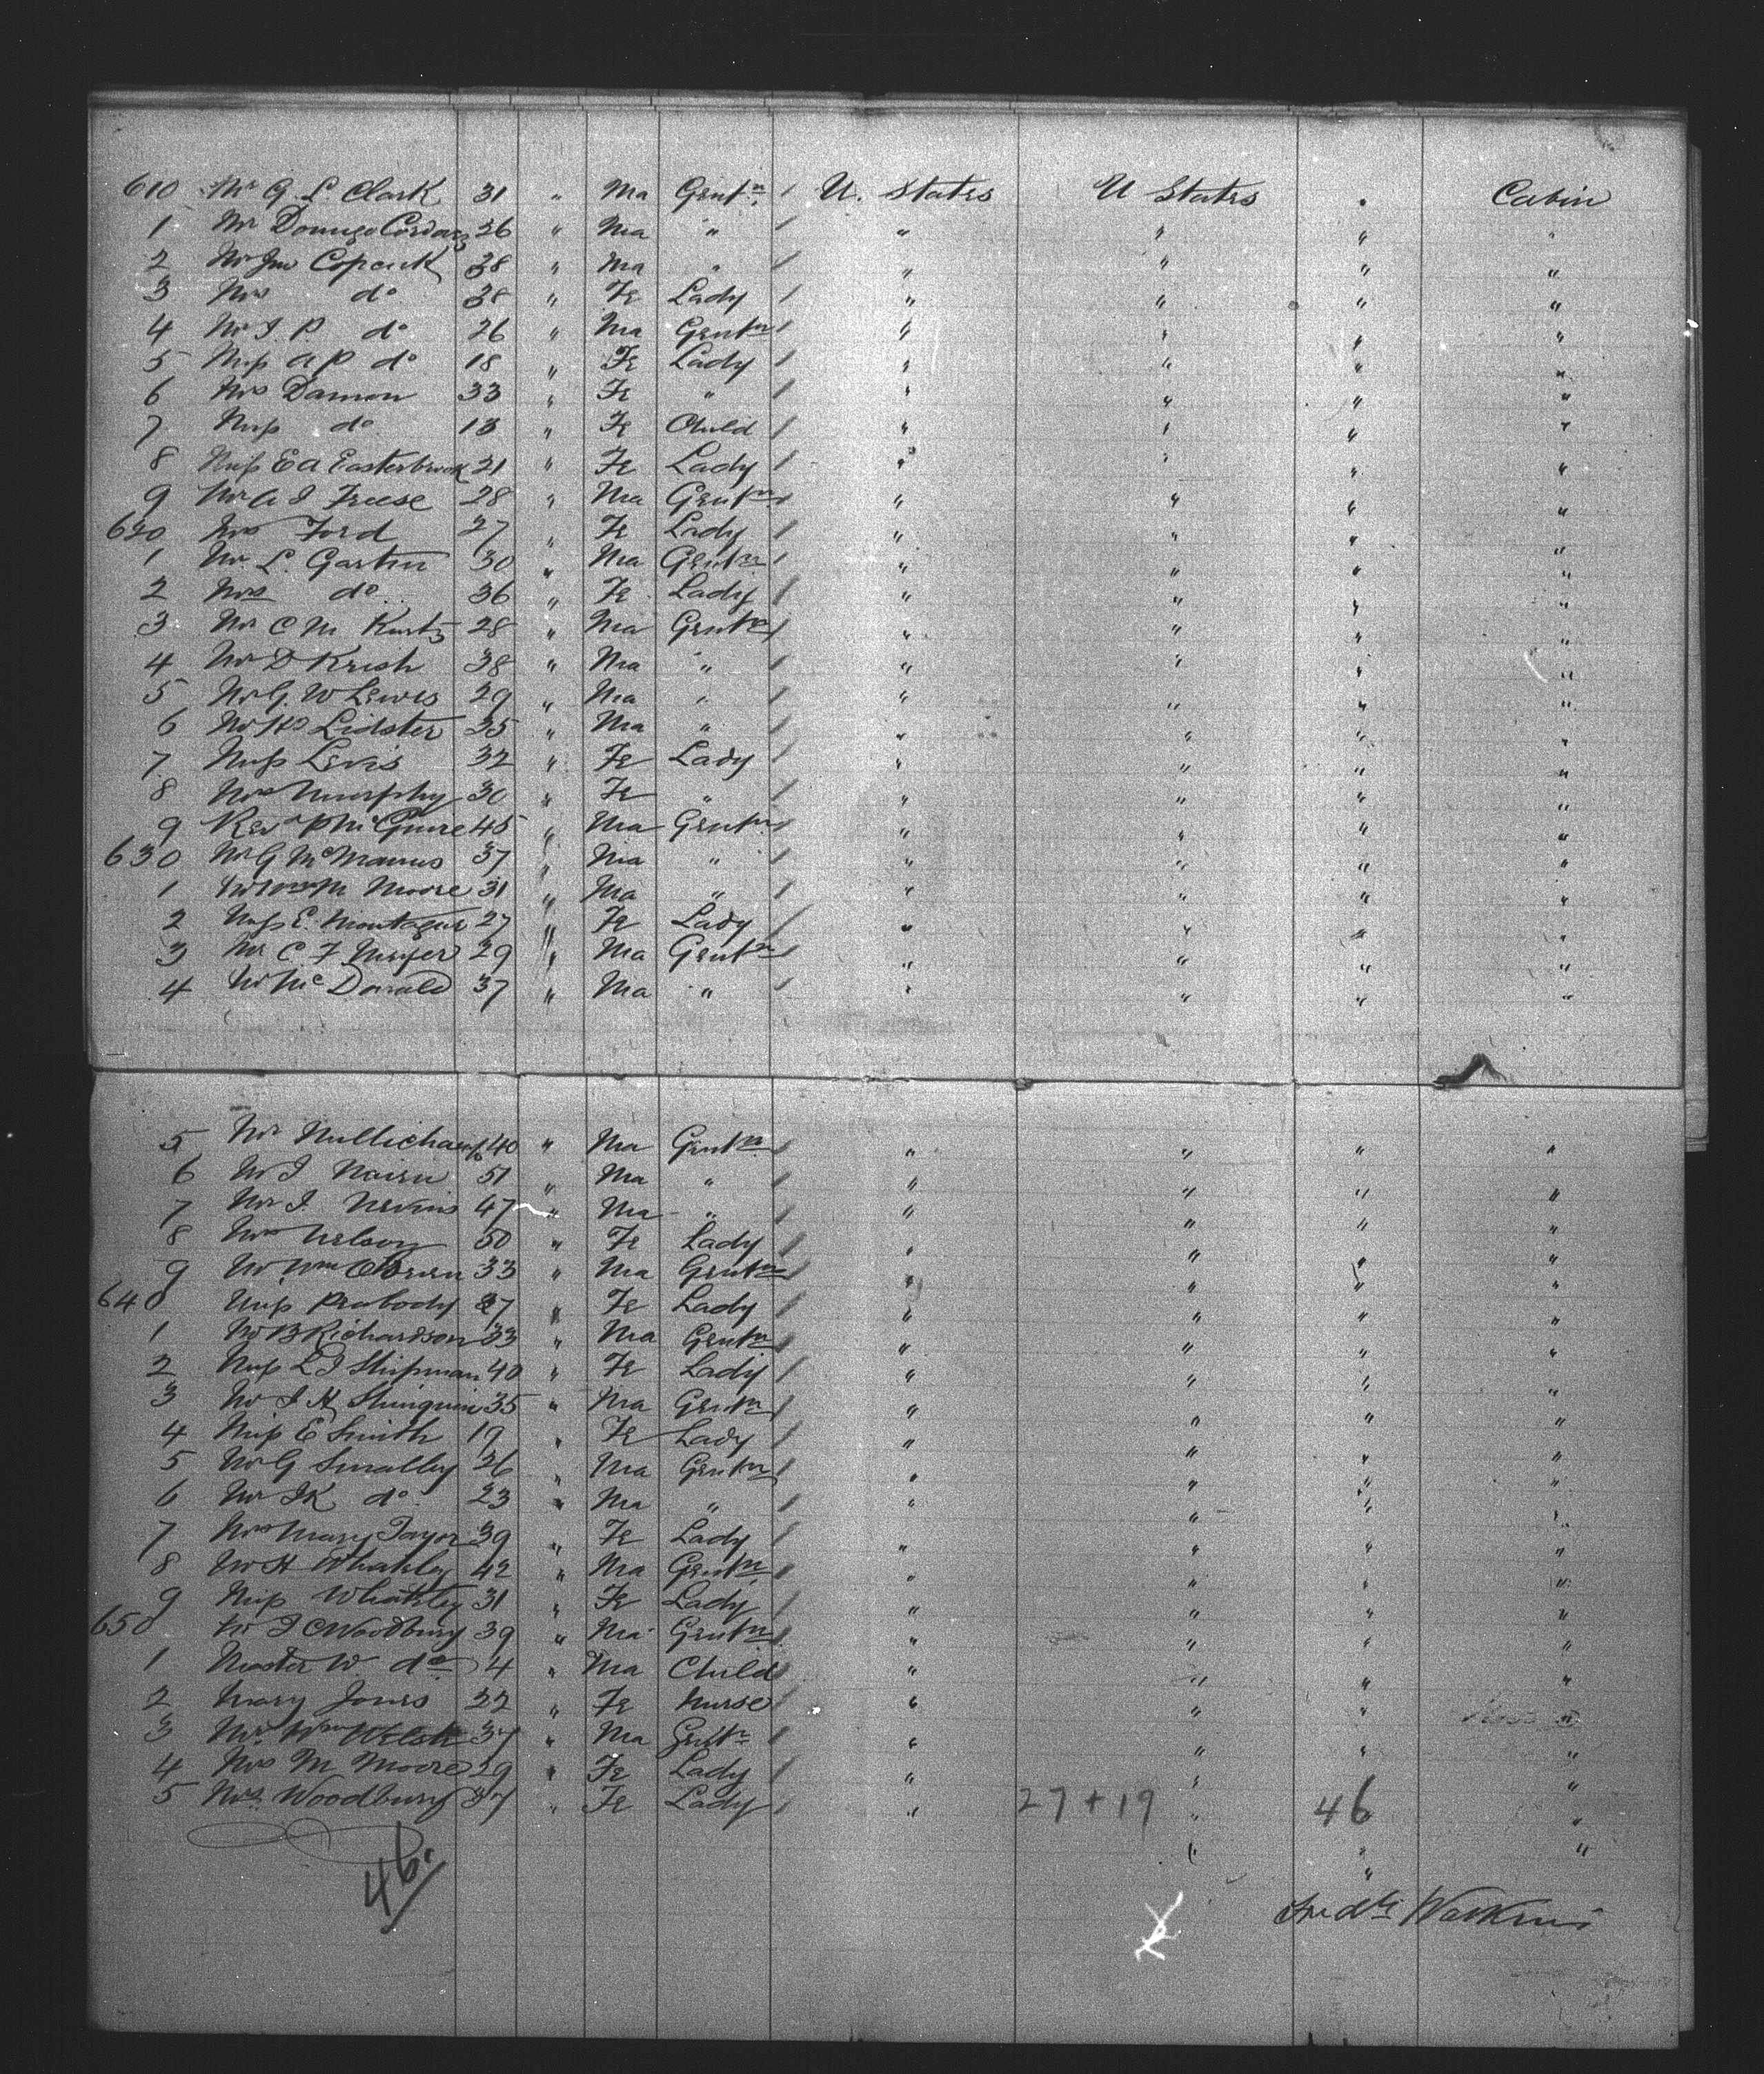 610 Mr G. L. Clark 31 " Ma Gentn / U. States U States " Cabin
1 Mr Domugo Cordarz 26 " Ma " / " " " "
2 Mr Jno Copcutt 38 " Ma " / " " " "
3 Mrs do 38 " Fe Lady / " " " "
4 Mr J. P. do 26 " Ma Gentn / " " " "
5 Miss A P do 18 " Fe Lady / " " " "
6 Mrs Damon 33 " Fe " / " " " "
7 Miss do 13 " Fe Child / " " " "
8 Miss E A Easterbrook 21 " Fe Lady / " " " "
9 Mr A J Freese 28 " Ma Gentn / " " " "
620 Mrs Ford 27 " Fe Lady / " " " "
1 Mr L. Gartin 30 " Ma Gentn / " " " "
2 Mrs do 36 " Fe Lady / " " " "
3 Mr C M Kurtz 28 " Ma Gentn / " " " "
4 Mr D Krish 38 " Ma " / " " " "
5 Mr G. W Lewis 29 " Ma " / " " " "
6 Mr Hs Lidster 35 " Ma " / " " " "
7 Miss Levis 32 " Fe Lady / " " " "
8 Mrs Murphy 30 " Fe " / " " " "
9 Revd P McGuire 45 " Ma Gentn / " " " "
630 Mr G McManus 37 " Ma " / " " " "
1 Mr Wm M Moore 31 " Ma " / " " " "
2 Miss E. Montague 27 " Fe Lady / " " " "
3 Mr C. F Meyer 29 " Ma Gentn / " " " "
4 Mr McDonald 37 " Ma " / " " " "
5 Mr Mullichamp 40 " Ma Gentn / " " " "
6 Mr J Nairn 51 " Ma " / " " " "
7 Mr J. Nevins 47 " Ma " / " " " "
8 Mrs Nelson 50 " Fe Lady / " " " "
9 Mr Wm OBrien 33 " Ma Gentn / " " " "
640 Miss Peabody 27 " Fe Lady / " " " "
1 Mr B Richardson 33 " Ma Gentn / " " " "
2 Miss L J Shipman 40 " Fe Lady / " " " "
3 Mr J H 35 " Ma Gentn / " " " "
4 Miss E Smith 19 " Fe Lady / " " " "
5 Mr G Smalley 26 " Ma Gentn / " " " "
6 Mr J K do 23 " Ma " / " " " "
7 Mrs Mary Tayor 39 " Fe Lady / " " " "
8 Mr H Whatsley 42 " Ma Gentn / " " " "
9 Miss Whatsley 31 " Fe Lady / " " " "
650 Mr J C Woodbury 39 " Ma Gentn / " " " "
1 Master W. do 4 " Ma Child / " " " "
2 Mary Jones 22 " Fe Nurse / " " " "
3 Mr Wm Welsh 37 " Ma Gentn / " " " "
4 Mrs M Moore 29 " Fe Lady / " " " "
5 Mrs Woodbury 37 " Fe Lady / " 27 + 19 " 46 "
46
Fredk Watkins